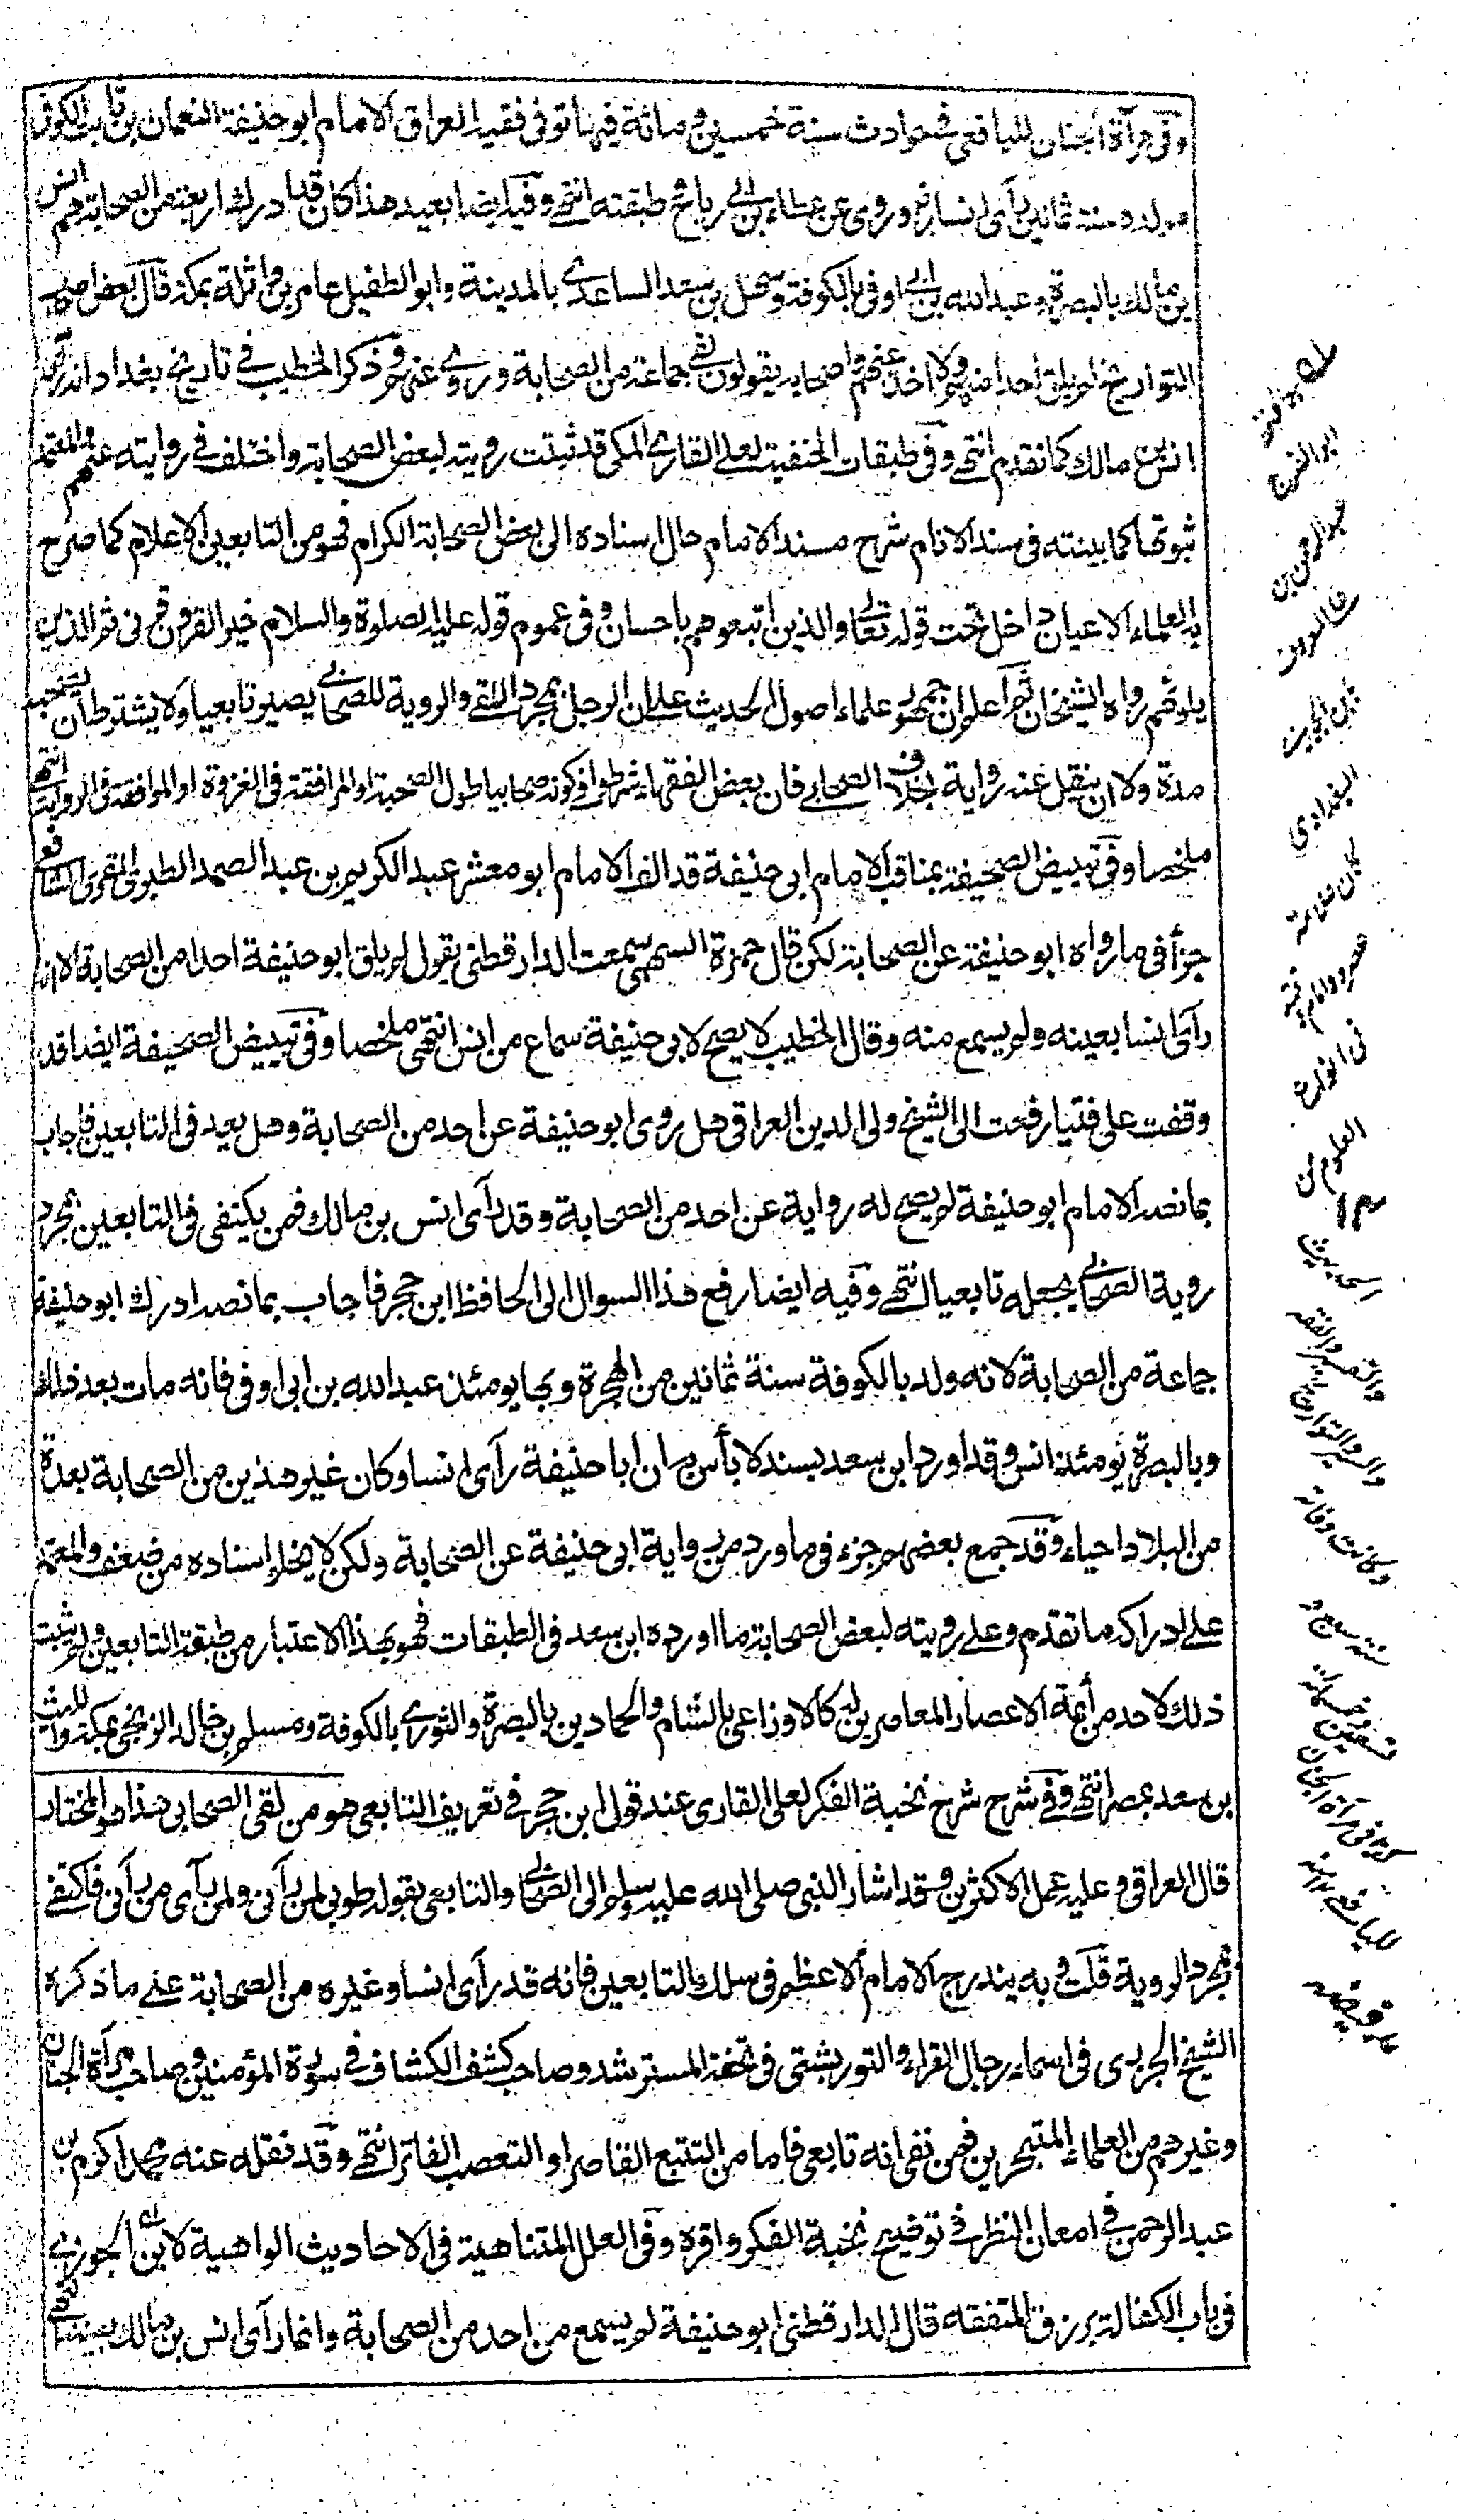 وفي مرآة الجنان لليافعي في حوادث سنة خمسين ومائة فيها توفي فقيه العراق الامام ابو حنيفة النعمان بن ثابت الكوفي
مولده سنة ثمانين رأى انسا وروى عن عطاء بن ابي رباح طبقته انتهى وفيه ايضا بعيد هذا كان قد ادرك اربعة من الصحابة هم انس
بن مالك بالبصرة وعبد الله بن ابي اوفى بالكوفة وسهل بن سعد الساعدي بالمدينة وابو الطفيل عامر بن واثلة بمكة قال بعض اصحاب
التواريخ لم يلق احدا منهم ولا اخذ عنهم واصحابه يقولون لقي جماعة من الصحابة وروى عنهم وذكر الخطيب في تاريخ بغداد انه رأى
انس بن مالك كما تقدم انتهى وفي طبقات الحنفية لعلي القاري المكي قد ثبتت رويته لبعض الصحابة واختلف في روايته عنهم والمعتمد
ثبوتها كما بينته في سند الانام شرح مسند الامام حال اسناده الى بعض الصحابة الكرام فهو من التابعين الاعلام كما صرح
به العلماء الاعيان داخل تحت قوله تعالى والذين اتبعوهم باحسان وفي عموم قوله عليه الصلوة والسلام خير القرون قرني ثم الذين
يلونهم رواه الشيخان ثم اعلم ان جمهور علماء اصول الحديث على ان الرجل بمجرد اللقي والروية للصحابي يصير تابعيا ولا يشترط ان يصحبه
مدة ولا ان ينقل عنه رواية بخلاف الصحابي فان بعض الفقهاء شرطوا في كونه صحابيا طول الصحبة او المرافقة في الغزوة او الموافقة في الرواية انتهى
ملخصا وفي تبييض الصحيفة بمناقب الامام ابي حنيفة قد الف الامام ابو معشر عبد الكريم بن عبد الصمد الطبري المقري الشافعي
جزأ في ما رواه ابو حنيفة عن الصحابة لكن قال حمزة السهمي سمعت الدارقطني يقول لم يلق ابو حنيفة احدا من الصحابة الا انه
رأى انسا بعينه ولم يسمع منه وقال الخطيب لا يصح لابي حنيفة سماع من انس انتهى ملخصا وفي تبييض الصحيفة ايضا قد
وقفت على فتيا رفعت الى الشيخ ولي الدين العراقي هل روى ابو حنيفة عن احد من الصحابة وهل يعد في التابعين فاجاب
بما نصه الامام ابو حنيفة لم يصح له رواية عن احد من الصحابة وقد رأى انس بن مالك فمن يكتفي في التابعين بمجرد
روية الصحابي يجعله تابعيا انتهى وفيه ايضا رفع هذا السوال الى الحافظ ابن حجر فاجاب بما نصه ادرك ابو حنيفة
جماعة من الصحابة لانه ولد بالكوفة سنة ثمانين من الهجرة وبها يومئذ عبد الله بن ابي اوفى فانه مات بعد ذلك
وبالبصرة يومئذ انس وقد اورد ابن سعد بسند لا بأس به ان ابا حنيفة رأى انسا وكان غير هذين من الصحابة بعدة
من البلاد احياء وقد جمع بعضهم جزء في ما ورد من رواية ابي حنيفة عن الصحابة ولكن لا يخلو اسناده من ضعف والمعتمد
على ادراكه ما تقدم وعلى رويته لبعض الصحابة ما اورده ابن سعد في الطبقات فهو بهذا الاعتبار من طبقة التابعين ولم يثبت
ذلك لاحد من أئمة الاعصار المعاصرين له كالاوزاعي بالشام والحمادين بالبصرة والثوري بالكوفة ومسلم بن خالد الزنجي بمكة والليث
بن سعد بمصر انتهى وفي شرح شرح نخبة الفكر لعلي القاري عند قول ابن حجر في تعريف التابعي هو من لقي الصحابي هذا هو المختار
قال العراقي وعليه عمل الاكثرين وقد اشار النبي صلى الله عليه وسلم الى الصحابي والتابعي بقوله طوبى لمن رآني ولمن رأى من رآني فاكتفى
بمجرد الروية قلت وبه يندرج الامام الاعظم في سلك التابعين فانه قد رأى انسا وغيره من الصحابة على ما ذكره
الشيخ الجزري في اسماء رجال القراء والتوربشتي في تحفة المسترشد وصاحب كشف الكشاف في سورة المؤمنين وصاحب مرآة الجنان
وغيرهم من العلماء المتبحرين فمن نفى انه تابعي فاما من التتبع القاصر او التعصب الفاتر انتهى وقد نقله عنه محمد اكرم بن
عبد الرحمن في امعان النظر في توضيح نخبة الفكر واقره وفي العلل المتناهية في الاحاديث الواهية لابن الجوزي
في باب الكفالة برزق المتفقه قال الدارقطني ابو حنيفة لم يسمع من احد من الصحابة وانما رأى انس بن مالك بعينه انتهى
ابو الفرج
عبد الرحمن بن
البغدادي
العلوم من
والتفسير والفقه
والسير والتواريخ
وكانت وفاته
سنة سبع و
تسعين وخمسمائة
كذا في مرآة الجنان
لليافعي